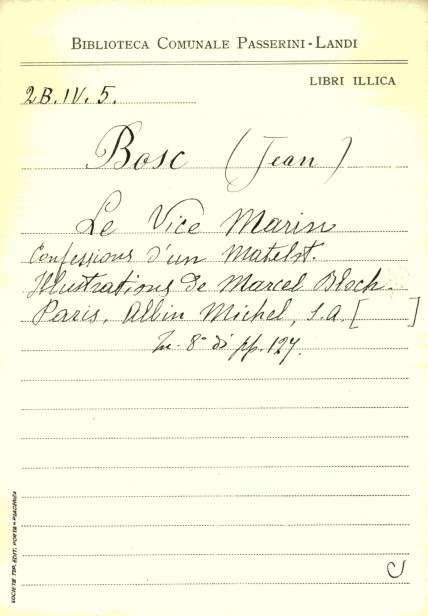 BIBLIOTECA COMUNALE PASSERINI-LANDI
LIBRI ILLICA
2B.IV.5.
Bosc (Jean)
Le Vice Marin
Confessions d'un Matelot.
Illustrations de Marcel Bloch.
Paris, Albin Michel, s.a. [ ]
In. 8° di pp. 127.
SOCIETÀ TIP. EDIT. PORTA - PIACENZA